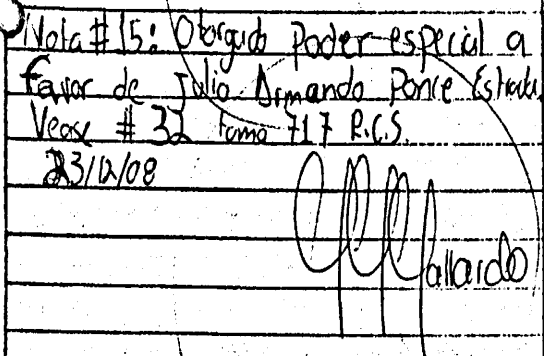 Nota #15: Otorgado Poder especial a
favor de Julio Armando Ponce Estrada,
Vease # 32 tomo 717 R.C.S.
23/12/08
Gallardo